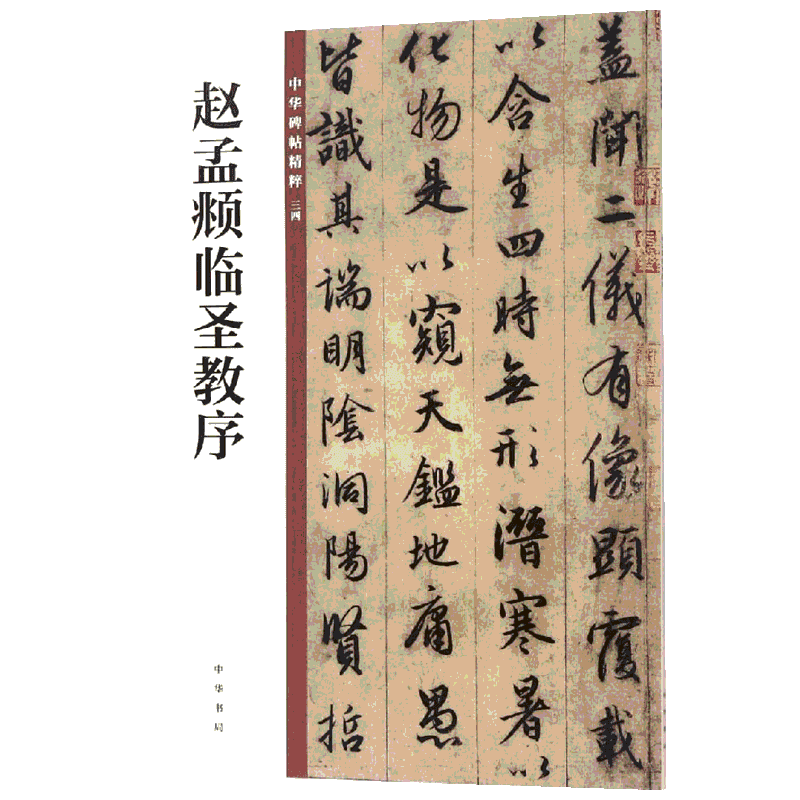 赵孟頫临圣教序
中华书局
中华碑帖精粹 三四
盖聞二儀有像顯覆載
以含生四時無形潛寒暑以
化物是以窺天鑑地庸愚
皆識其端明陰洞陽賢哲